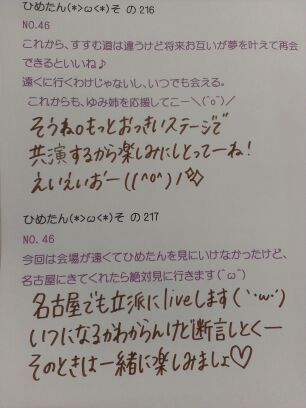 ひめたん(*>ω<*)その216
NO.46
これから、すすむ道は違うけど将来お互いが夢を叶えて再会
できるといいね♪
遠くに行くわけじゃないし、いつでも会える。
これからも、ゆみ姉を応援してこー＼(^o^)／
そうね。もっとおっきいステージで
共演するから楽しみにしとってーね！
えいえいおー((^o^)ﾉ◇
ひめたん(*>ω<*)その217
NO.46
今回は会場が遠くてひめたんを見にいけなかったけど、
名古屋にきてくれたら絶対見に行きます(^ω^)
名古屋でも立派にliveします(`･ω･´)
いつになるかわからんけど断言しとくー
そのときは一緒に楽しみましょ♡